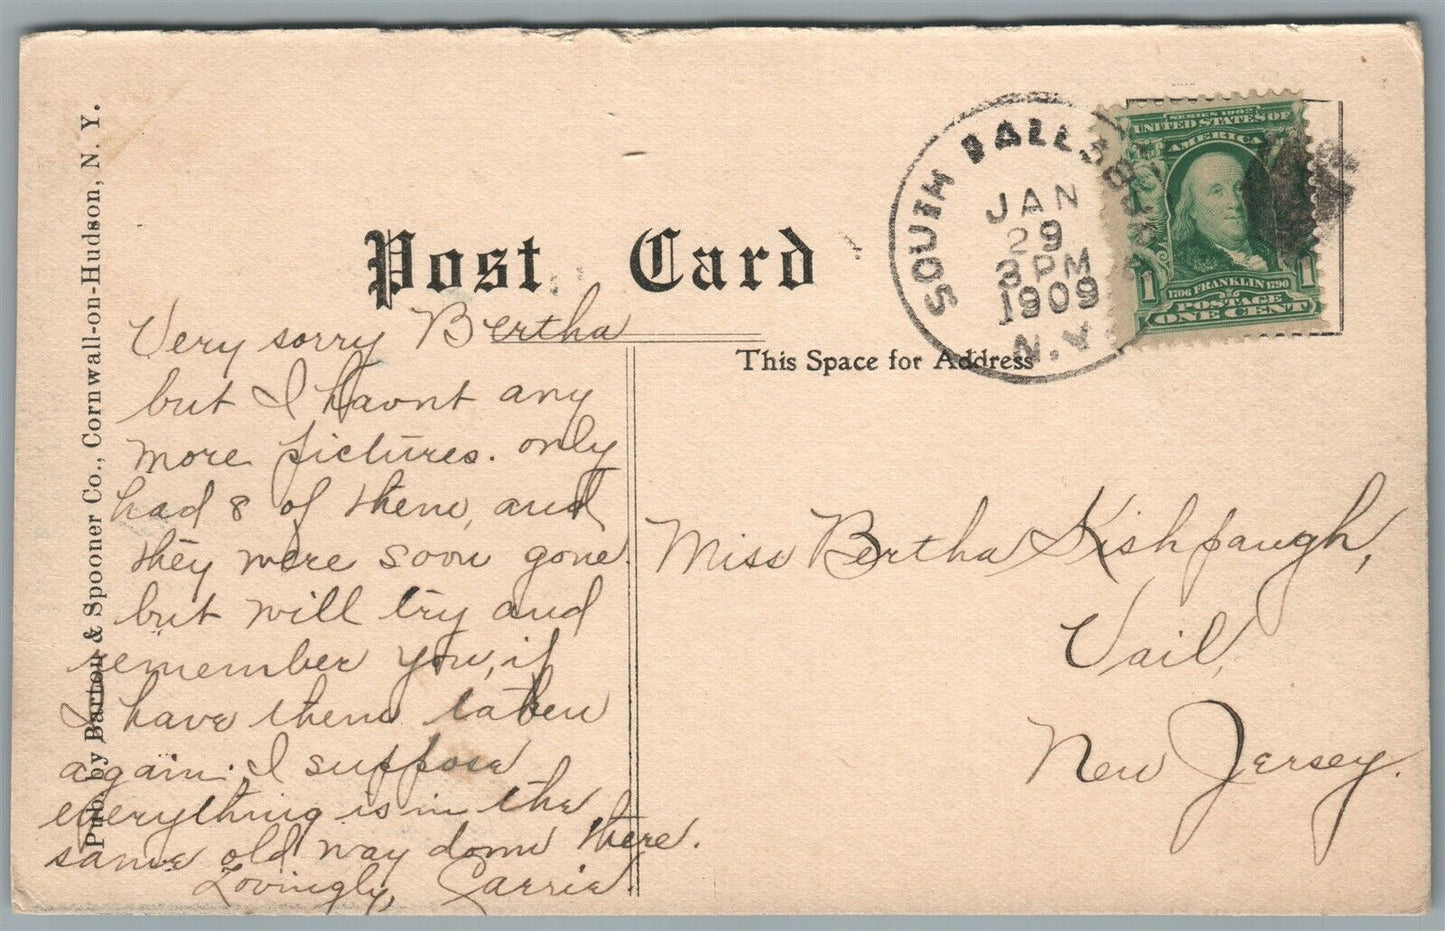 Post Card
This Space for Address
Pub. by Barton & Spooner Co., Cornwall-on-Hudson, N. Y.
SOUTH FALLSBURG
JAN
29
3 PM
1909
N.Y.
SERIES 1902
UNITED STATES OF
AMERICA
1706 FRANKLIN 1790
1 1
POSTAGE
ONE CENT
Very sorry Bertha
but I havnt any
more pictures. only
had 8 of them, and
they were soon gone.
but will try and
remember you, if
I have them taken
again. I suppose
everything is in the
same old way down there.
Lovingly, Carrie.
Miss Bertha Kishpaugh,
Vail,
New Jersey.